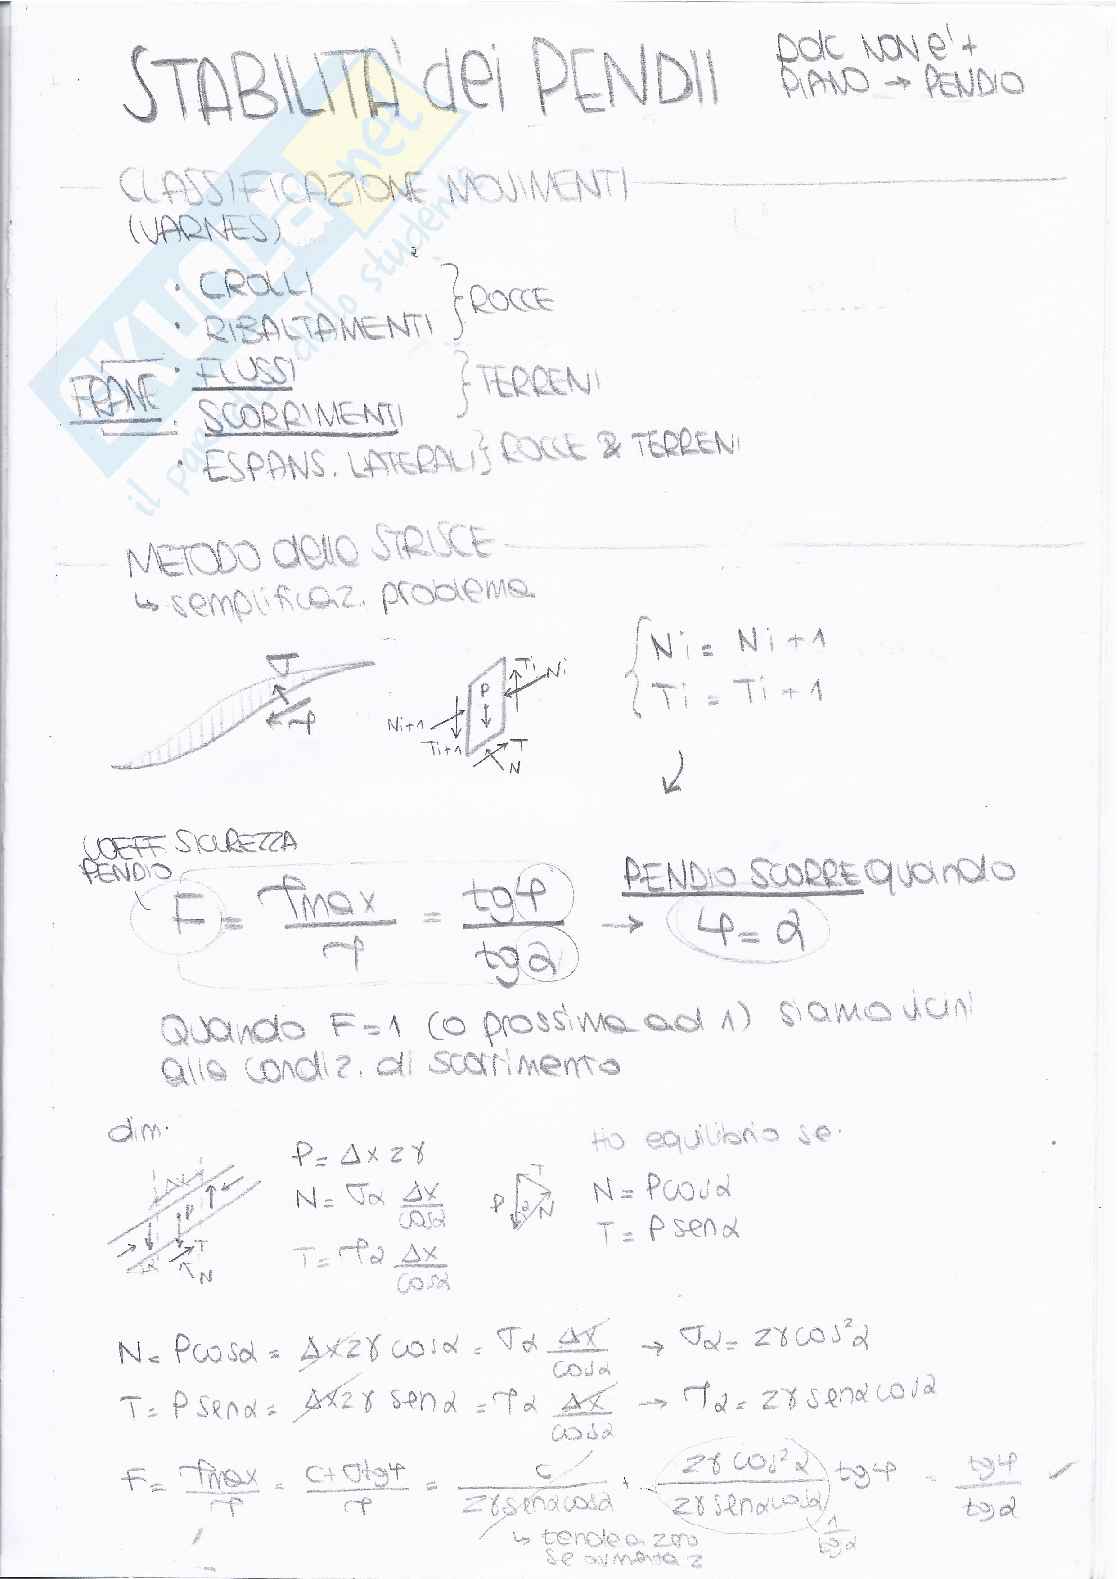 STABILITÀ dei PENDII
pdc NON è +
PIANO → PENDIO
CLASSIFICAZIONE MOVIMENTI
(VARNES)
• CROLLI
• RIBALTAMENTI } ROCCE
FRANE • FLUSSI
• SCORRIMENTI } TERRENI
• ESPANS. LATERALI } ROCCE & TERRENI
METODO delle STRISCE
↳ semplificaz. problema
σ
τ
P
Ti
Ni
Ni+1
Ti+1
T
N
{ Ni = Ni+1
Ti = Ti+1
COEFF SICUREZZA
PENDIO
F = τmax / τ = tgφ / tgα → PENDIO SCORRE quando
φ = α
Quando F=1 (o prossimo ad 1) siamo vicini
alla condiz. di scorrimento
dim.
Δx
P
T
N
P = Δx z γ
N = σα Δx / cosα
T = τα Δx / cosα
P
T
α
N
Ho equilibrio se:
N = Pcosα
T = P senα
N = Pcosα = Δx z γ cosα = σα Δx / cosα → σα = zγcos²α
T = P senα = Δx z γ senα = τα Δx / cosα → τα = zγ senα cosα
F = τmax / τ = c + σtgφ / τ = c / zγ senα cosα + zγ cos²α / zγ senα cosα tgφ = tgφ / tgα
↳ tende a zero
se aumenta z
1 / tgα
SKUOLA.net
il paradiso dello studente